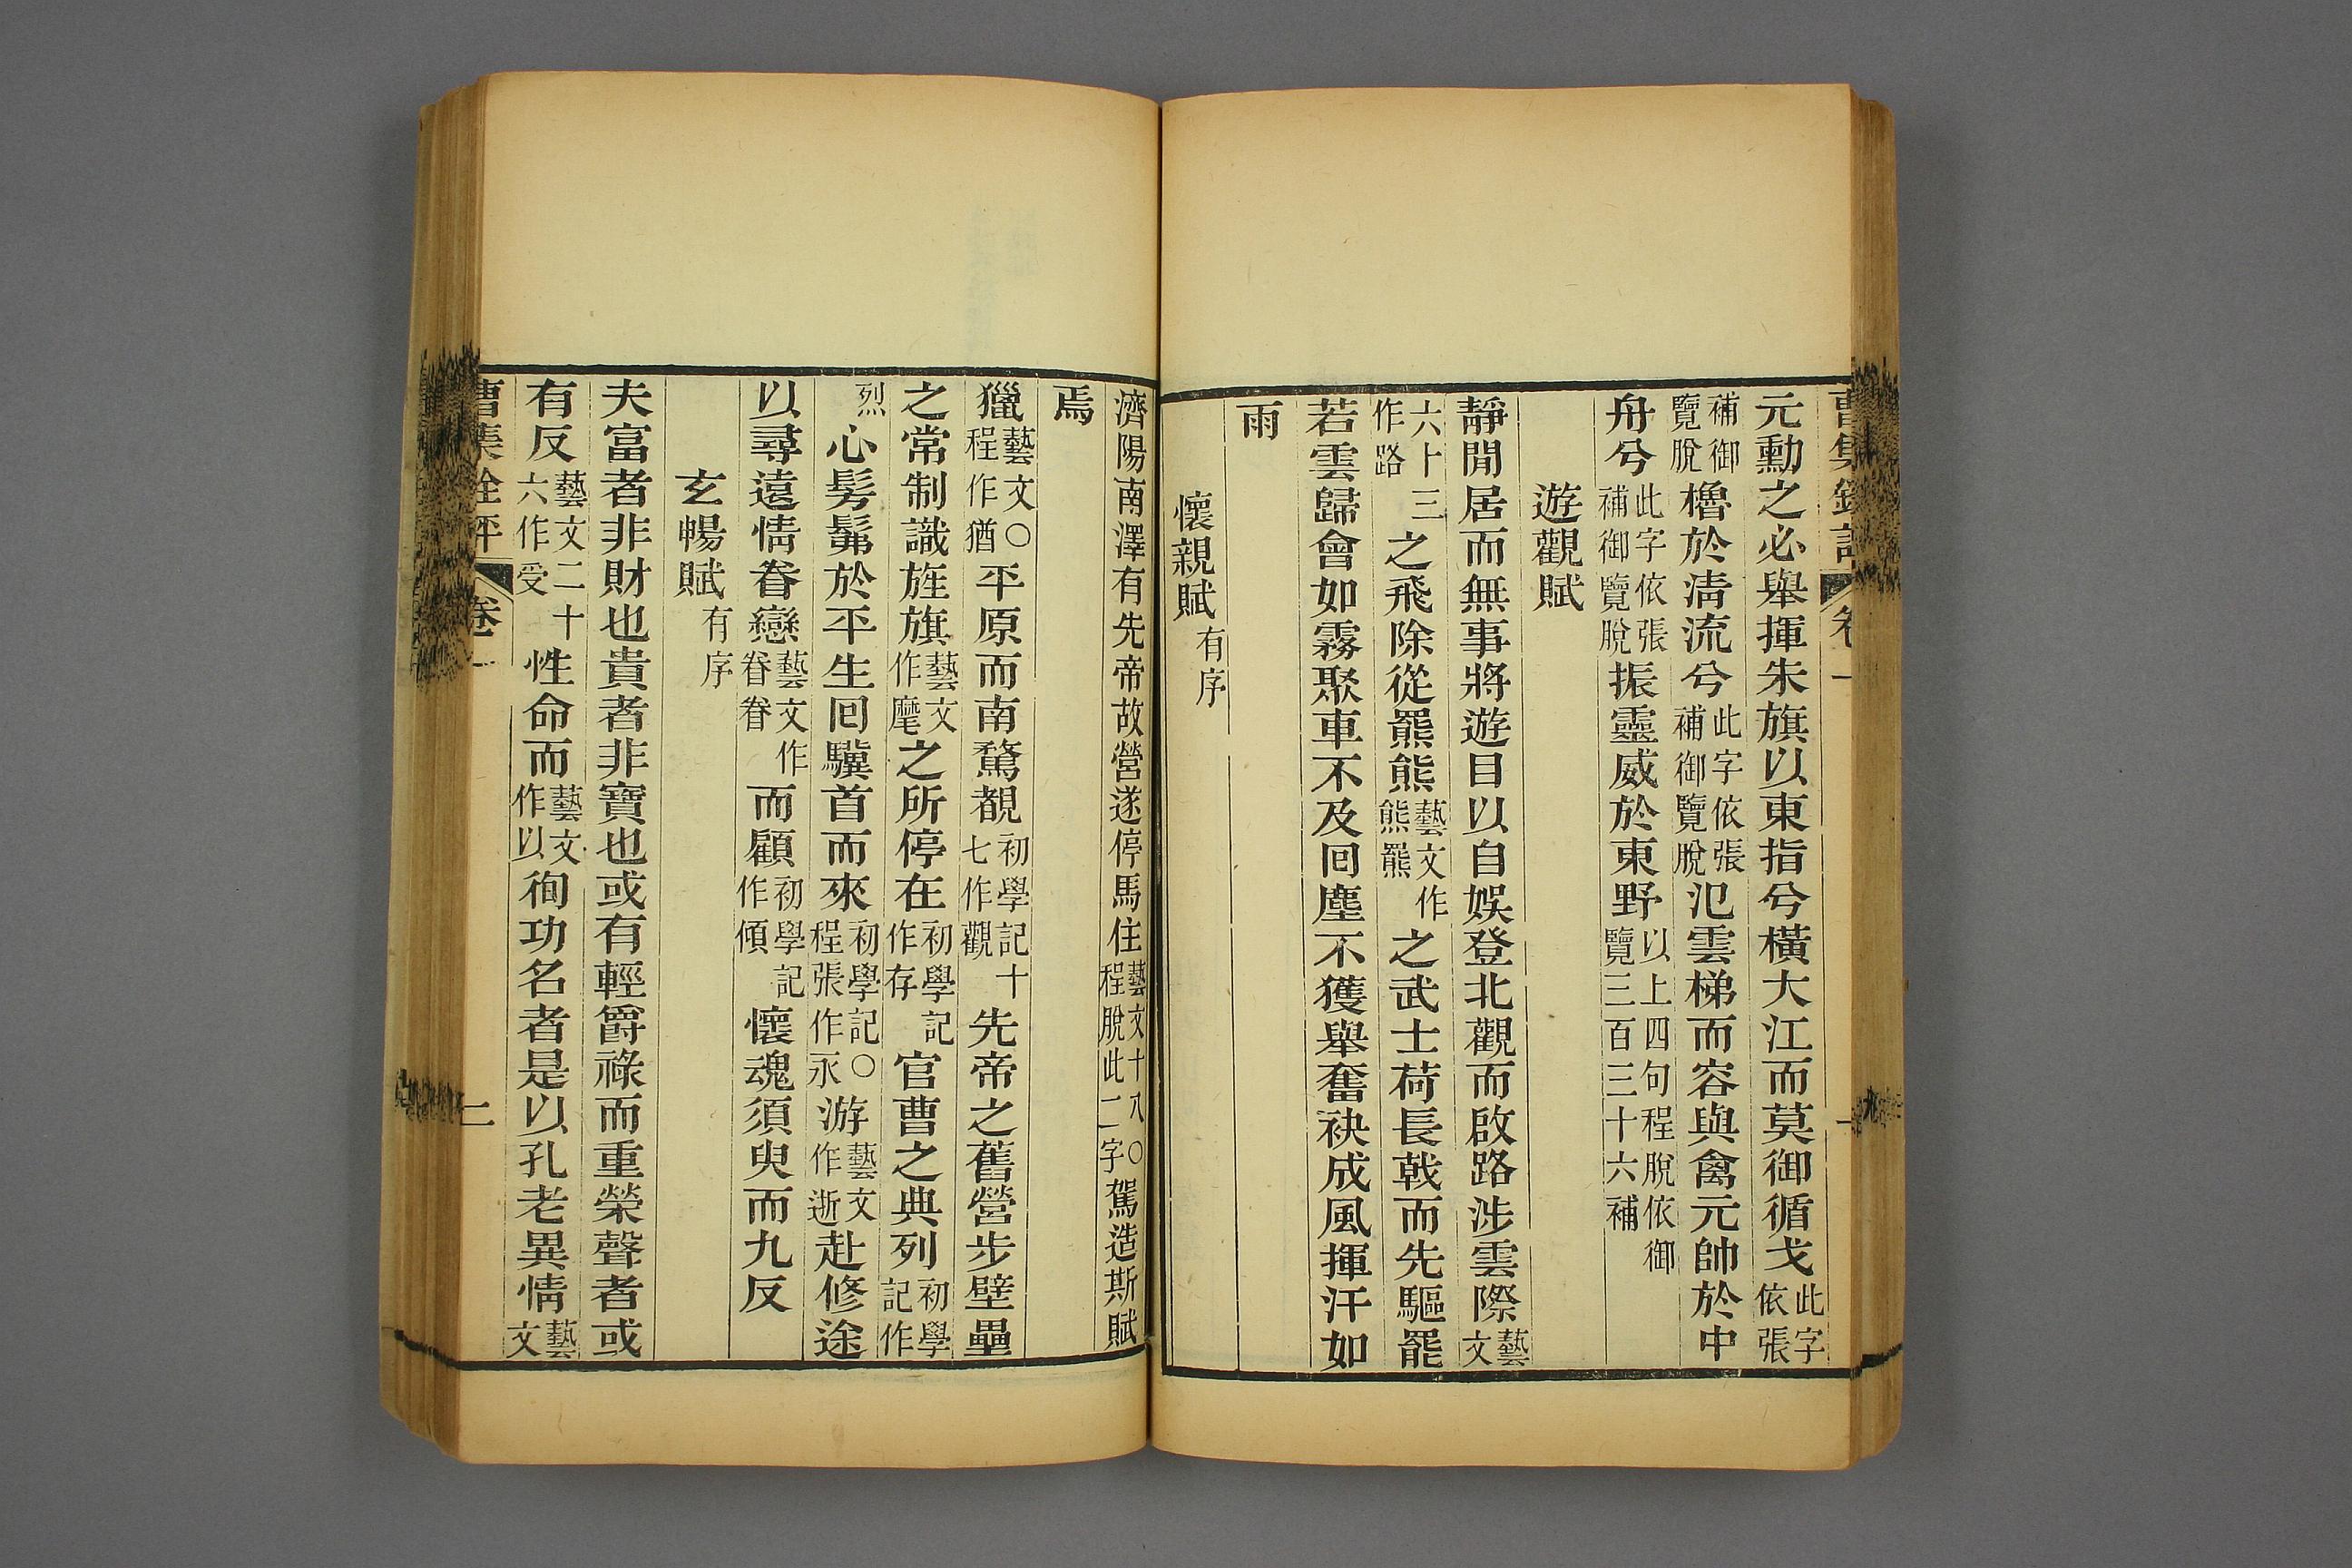 元勳之必舉揮朱旗以東指兮橫大江而莫御循戈此字依張
補御覽脫櫓於清流兮此字依張補御覽脫氾雲梯而容與禽元帥於中
舟兮此字依張補御覽脫振靈威於東野以上四句程脫依御覽三百三十六補
遊觀賦
靜閒居而無事將遊目以自娛登北觀而啟路涉雲際藝文
六十三作路之飛除從羆熊藝文作熊羆之武士荷長戟而先驅罷
若雲歸會如霧聚車不及回塵不獲舉奮袂成風揮汗如
雨
懷親賦有序
濟陽南澤有先帝故營遂停馬住藝文十八〇程脫此二字駕造斯賦
焉
獵藝文〇程作猶平原而南騖覩初學記十七作觀先帝之舊營步壁壘
之常制識旌旗藝文作麾之所停在初學記作存官曹之典列初學記作
烈心髣髴於平生回驥首而來初學記〇程張作永游藝文作逝赴修途
以尋遠情眷戀藝文作眷眷而顧初學記作傾懷魂須臾而九反
玄暢賦有序
夫富者非財也貴者非寶也或有輕爵祿而重榮聲者或
有反藝文二十六作受性命而藝文作以徇功名者是以孔老異情藝文
曹集銓評 卷一 二